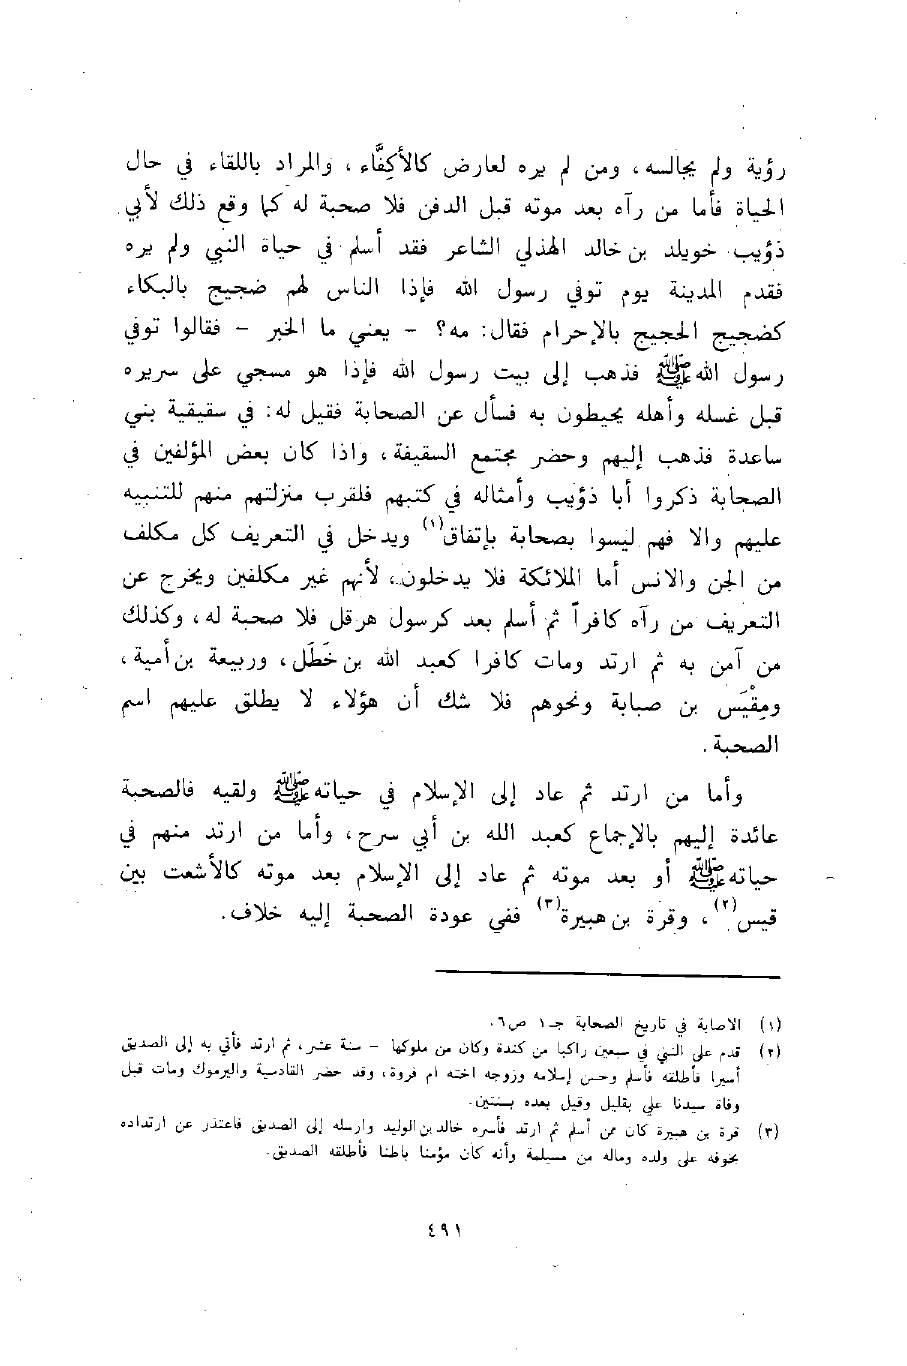 رؤية ولم يجالسه، ومن لم يره لعارض كالأكِفَّاء، والمراد باللقاء في حال
الحياة فأما من رآه بعد موته قبل الدفن فلا صحبة له كما وقع ذلك لأبي
ذؤيب خويلد بن خالد الهذلي الشاعر فقد أسلم في حياة النبي ولم يره
فقدم المدينة يوم توفي رسول الله فإذا الناس لهم ضجيج بالبكاء
كضجيج الحجيج بالإحرام فقال: مه؟ - يعني ما الخبر - فقالوا توفي
رسول الله ﷺ فذهب إلى بيت رسول الله فإذا هو مسجي على سريره
قبل غسله وأهله يحيطون به فسأل عن الصحابة فقيل له: في سقيقية بني
ساعدة فذهب إليهم وحضر مجتمع السقيفة، واذا كان بعض المؤلفين في
الصحابة ذكروا أبا ذؤيب وأمثاله في كتبهم فلقرب منزلتهم منهم للتنبيه
عليهم والا فهم ليسوا بصحابة بإتفاق(١) ويدخل في التعريف كل مكلف
من الجن والانس أما الملائكة فلا يدخلون، لأنهم غير مكلفين ويخرج عن
التعريف من رآه كافراً ثم أسلم بعد كرسول هرقل فلا صحبة له، وكذلك
من آمن به ثم ارتد ومات كافرا كعبد الله بن خَطَل، وربيعة بن أمية،
ومِقْيَس بن صبابة ونحوهم فلا شك أن هؤلاء لا يطلق عليهم اسم
الصحبة.
وأما من ارتد ثم عاد إلى الإسلام في حياته ﷺ ولقيه فالصحبة
عائدة إليهم بالإجماع كعبد الله بن أبي سرح، وأما من ارتد منهم في
حياته ﷺ أو بعد موته ثم عاد إلى الإسلام بعد موته كالأشعت بين
قيس(٢)، وقرة بن هبيرة(٣) ففي عودة الصحبة إليه خلاف.
(١) الاصابة في تاريخ الصحابة جـ١ ص٦.
(٢) قدم على النبي في سبعين راكبا من كندة وكان من ملوكها - سنة عشر، ثم ارتد فأتي به إلى الصديق
أسيرا فأطلقه فأسلم وحسن إسلامه وزوجه اخته ام فروة، وقد حضر القادسية واليرموك ومات قبل
وفاة سيدنا علي بقليل وقيل بعده بسنتين.
(٣) قرة بن هبيرة كان ممن أسلم ثم ارتد فأسره خالد بن الوليد وارسله إلى الصديق فاعتذر عن ارتداده
بخوفه على ولده وماله من مسيلمة وأنه كان مؤمنا باطنا فأطلقه الصديق.
٤٩١